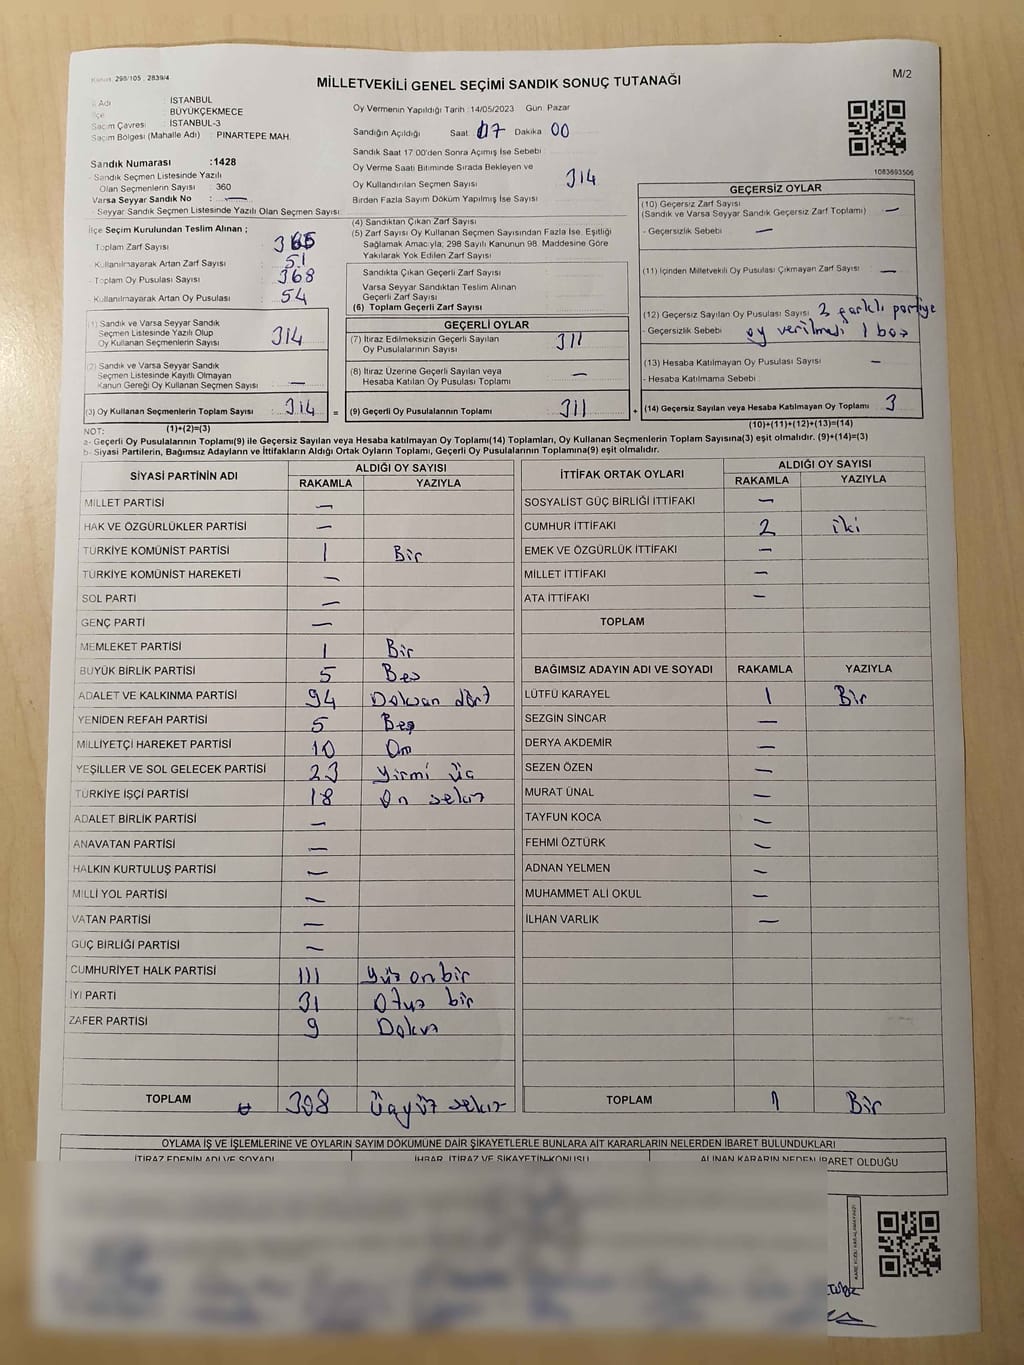 Kanun 298/105, 2839/4
M/2
MİLLETVEKİLİ GENEL SEÇİMİ SANDIK SONUÇ TUTANAĞI
İl Adı : İSTANBUL
İlçe : BÜYÜKÇEKMECE
Seçim Çevresi : İSTANBUL-3
Seçim Bölgesi (Mahalle Adı) : PINARTEPE MAH.
Sandık Numarası :1428
- Sandık Seçmen Listesinde Yazılı
Olan Seçmenlerin Sayısı : 360
Varsa Seyyar Sandık No : —
- Seyyar Sandık Seçmen Listesinde Yazılı Olan Seçmen Sayısı:
Oy Vermenin Yapıldığı Tarih :14/05/2023 Gün: Pazar
Sandığın Açıldığı Saat: 17 Dakika 00
Sandık Saat 17:00'den Sonra Açımış İse Sebebi :
Oy Verme Saati Bitiminde Sırada Bekleyen ve
Oy Kullandırılan Seçmen Sayısı : 314
Birden Fazla Sayım Döküm Yapılmış İse Sayısı :
1083693506
İlçe Seçim Kurulundan Teslim Alınan ;
Toplam Zarf Sayısı :
- Kullanılmayarak Artan Zarf Sayısı : 51
- Toplam Oy Pusulası Sayısı : 368
- Kullanılmayarak Artan Oy Pusulası : 54
(1) Sandık ve Varsa Seyyar Sandık
Seçmen Listesinde Yazılı Olup
Oy Kullanan Seçmenlerin Sayısı : 314
(2) Sandık ve Varsa Seyyar Sandık
Seçmen Listesinde Kayıtlı Olmayan
Kanun Gereği Oy Kullanan Seçmen Sayısı : —
(3) Oy Kullanan Seçmenlerin Toplam Sayısı : 314 =
(1)+(2)=(3)
(4) Sandıktan Çıkan Zarf Sayısı :
(5) Zarf Sayısı Oy Kullanan Seçmen Sayısından Fazla İse, Eşitliği
Sağlamak Amacıyla; 298 Sayılı Kanunun 98. Maddesine Göre
Yakılarak Yok Edilen Zarf Sayısı :
Sandıkta Çıkan Geçerli Zarf Sayısı :
Varsa Seyyar Sandıktan Teslim Alınan
Geçerli Zarf Sayısı :
(6) Toplam Geçerli Zarf Sayısı :
GEÇERLİ OYLAR
(7) İtiraz Edilmeksizin Geçerli Sayılan
Oy Pusulalarının Sayısı : 311
(8) İtiraz Üzerine Geçerli Sayılan veya
Hesaba Katılan Oy Pusulası Toplamı : —
(9) Geçerli Oy Pusulalarının Toplamı : 311 +
GEÇERSİZ OYLAR
(10) Geçersiz Zarf Sayısı :
(Sandık ve Varsa Seyyar Sandık Geçersiz Zarf Toplamı) —
- Geçersizlik Sebebi : —
(11) İçinden Milletvekili Oy Pusulası Çıkmayan Zarf Sayısı : —
(12) Geçersiz Sayılan Oy Pusulası Sayısı : 3 farklı partiye
- Geçersizlik Sebebi : oy verilmedi 1 boş
(13) Hesaba Katılmayan Oy Pusulası Sayısı : —
- Hesaba Katılmama Sebebi :
(14) Geçersiz Sayılan veya Hesaba Katılmayan Oy Toplamı : 3
(10)+(11)+(12)+(13)=(14)
NOT:
a- Geçerli Oy Pusulalarının Toplamı(9) ile Geçersiz Sayılan veya Hesaba katılmayan Oy Toplamı(14) Toplamları, Oy Kullanan Seçmenlerin Toplam Sayısına(3) eşit olmalıdır. (9)+(14)=(3)
b- Siyasi Partilerin, Bağımsız Adayların ve İttifakların Aldığı Ortak Oyların Toplamı, Geçerli Oy Pusulalarının Toplamına(9) eşit olmalıdır.
SİYASİ PARTİNİN ADI ALDIĞI OY SAYISI
RAKAMLA YAZIYLA
MİLLET PARTİSİ —
HAK VE ÖZGÜRLÜKLER PARTİSİ —
TÜRKİYE KOMÜNİST PARTİSİ 1 Bir
TÜRKİYE KOMÜNİST HAREKETİ —
SOL PARTİ —
GENÇ PARTİ —
MEMLEKET PARTİSİ 1 Bir
BÜYÜK BİRLİK PARTİSİ 5 Beş
ADALET VE KALKINMA PARTİSİ 94 Doksan dört
YENİDEN REFAH PARTİSİ 5 Beş
MİLLİYETÇİ HAREKET PARTİSİ 10 On
YEŞİLLER VE SOL GELECEK PARTİSİ 23 Yirmi üç
TÜRKİYE İŞÇİ PARTİSİ 18 On sekiz
ADALET BİRLİK PARTİSİ —
ANAVATAN PARTİSİ —
HALKIN KURTULUŞ PARTİSİ —
MİLLİ YOL PARTİSİ —
VATAN PARTİSİ —
GÜÇ BİRLİĞİ PARTİSİ —
CUMHURİYET HALK PARTİSİ 111 Yüz on bir
İYİ PARTİ 31 Otuz bir
ZAFER PARTİSİ 9 Dokuz
TOPLAM 308 Üçyüz sekiz
İTTİFAK ORTAK OYLARI ALDIĞI OY SAYISI
RAKAMLA YAZIYLA
SOSYALİST GÜÇ BİRLİĞİ İTTİFAKI —
CUMHUR İTTİFAKI 2 iki
EMEK VE ÖZGÜRLÜK İTTİFAKI —
MİLLET İTTİFAKI —
ATA İTTİFAKI —
TOPLAM
BAĞIMSIZ ADAYIN ADI VE SOYADI RAKAMLA YAZIYLA
LÜTFÜ KARAYEL 1 Bir
SEZGİN SİNCAR —
DERYA AKDEMİR —
SEZEN ÖZEN —
MURAT ÜNAL —
TAYFUN KOCA —
FEHMİ ÖZTÜRK —
ADNAN YELMEN —
MUHAMMET ALİ OKUL —
İLHAN VARLIK —
TOPLAM 1 Bir
OYLAMA İŞ VE İŞLEMLERİNE VE OYLARIN SAYIM DÖKÜMÜNE DAİR ŞİKAYETLERLE BUNLARA AİT KARARLARIN NELERDEN İBARET BULUNDUKLARI
İTİRAZ EDENİN ADI VE SOYADI İHBAR, İTİRAZ VE ŞİKAYETİN KONUSU ALINAN KARARIN NEDEN İBARET OLDUĞU